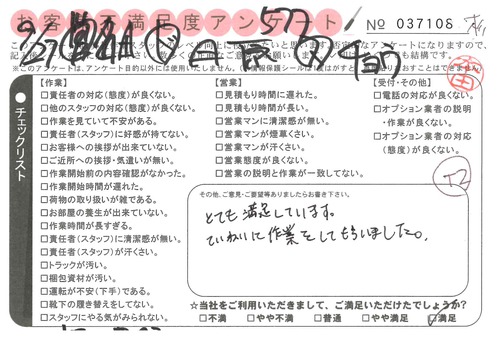 お客様満足度アンケート
№ 037108
チェックリスト
【作業】
□責任者の対応(態度)が良くない。
□他のスタッフの対応(態度)が良くない。
□作業を見ていて不安がある。
□責任者(スタッフ)に好感が持てない。
□お客様への挨拶が出来ていない。
□ご近所への挨拶・気遣いが無い。
□作業開始前の内容確認がなかった。
□作業開始時間が遅れた。
□荷物の取り扱いが雑である。
□お部屋の養生が出来ていない。
□作業時間が長すぎる。
□責任者(スタッフ)に清潔感が無い。
□責任者(スタッフ)が汗くさい。
□トラックが汚い。
□梱包資材が汚い。
□運転が不安(下手)である。
□靴下の履き替えをしてない。
□スタッフにやる気がみられない。
【営業】
□見積もり時間に遅れた。
□見積もり時間が長い。
□営業マンに清潔感が無い。
□営業マンが煙草くさい。
□営業マンが汗くさい。
□営業態度が良くない。
□営業の説明と作業が一致してない。
【受付・その他】
□電話の対応が良くない。
□オプション業者の説明
・作業が良くない。
□オプション業者の対応
(態度)が良くない。
その他、ご意見・ご要望等ありましたらお書き下さい。
とても満足しています。
ていねいに作業をしてもらいました。
☆当社をご利用いただきまして、ご満足いただけたでしょうか?
□不満 □やや不満 □普通 □やや満足 ☑満足